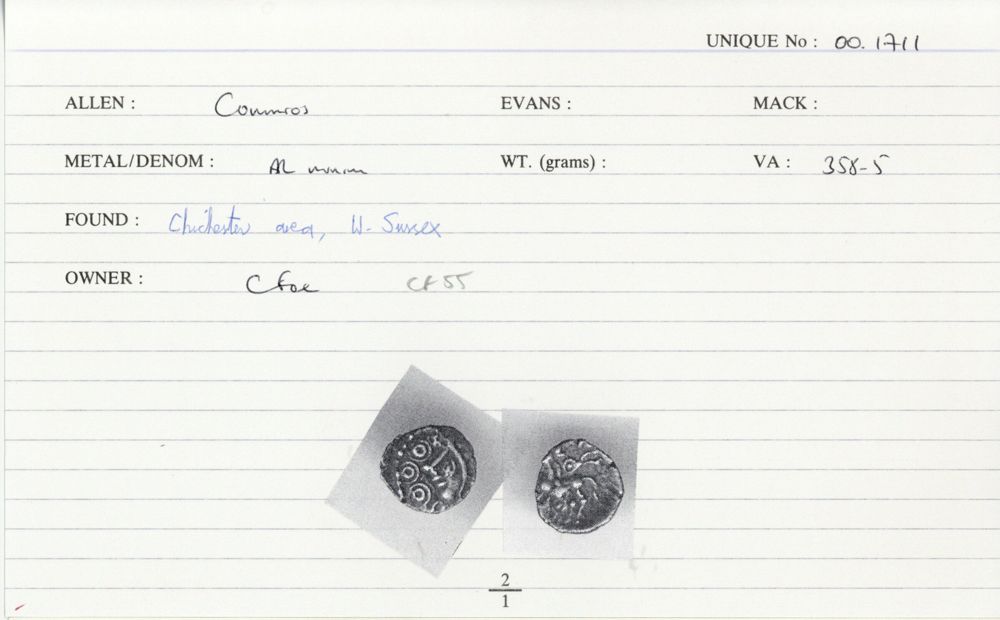 UNIQUE No : 00.1711
ALLEN : Commios EVANS : MACK :
METAL/DENOM : AR minim WT. (grams) : VA : 358-5
FOUND : Chichester area, W. Sussex
OWNER : C Foe CF 55
2
1